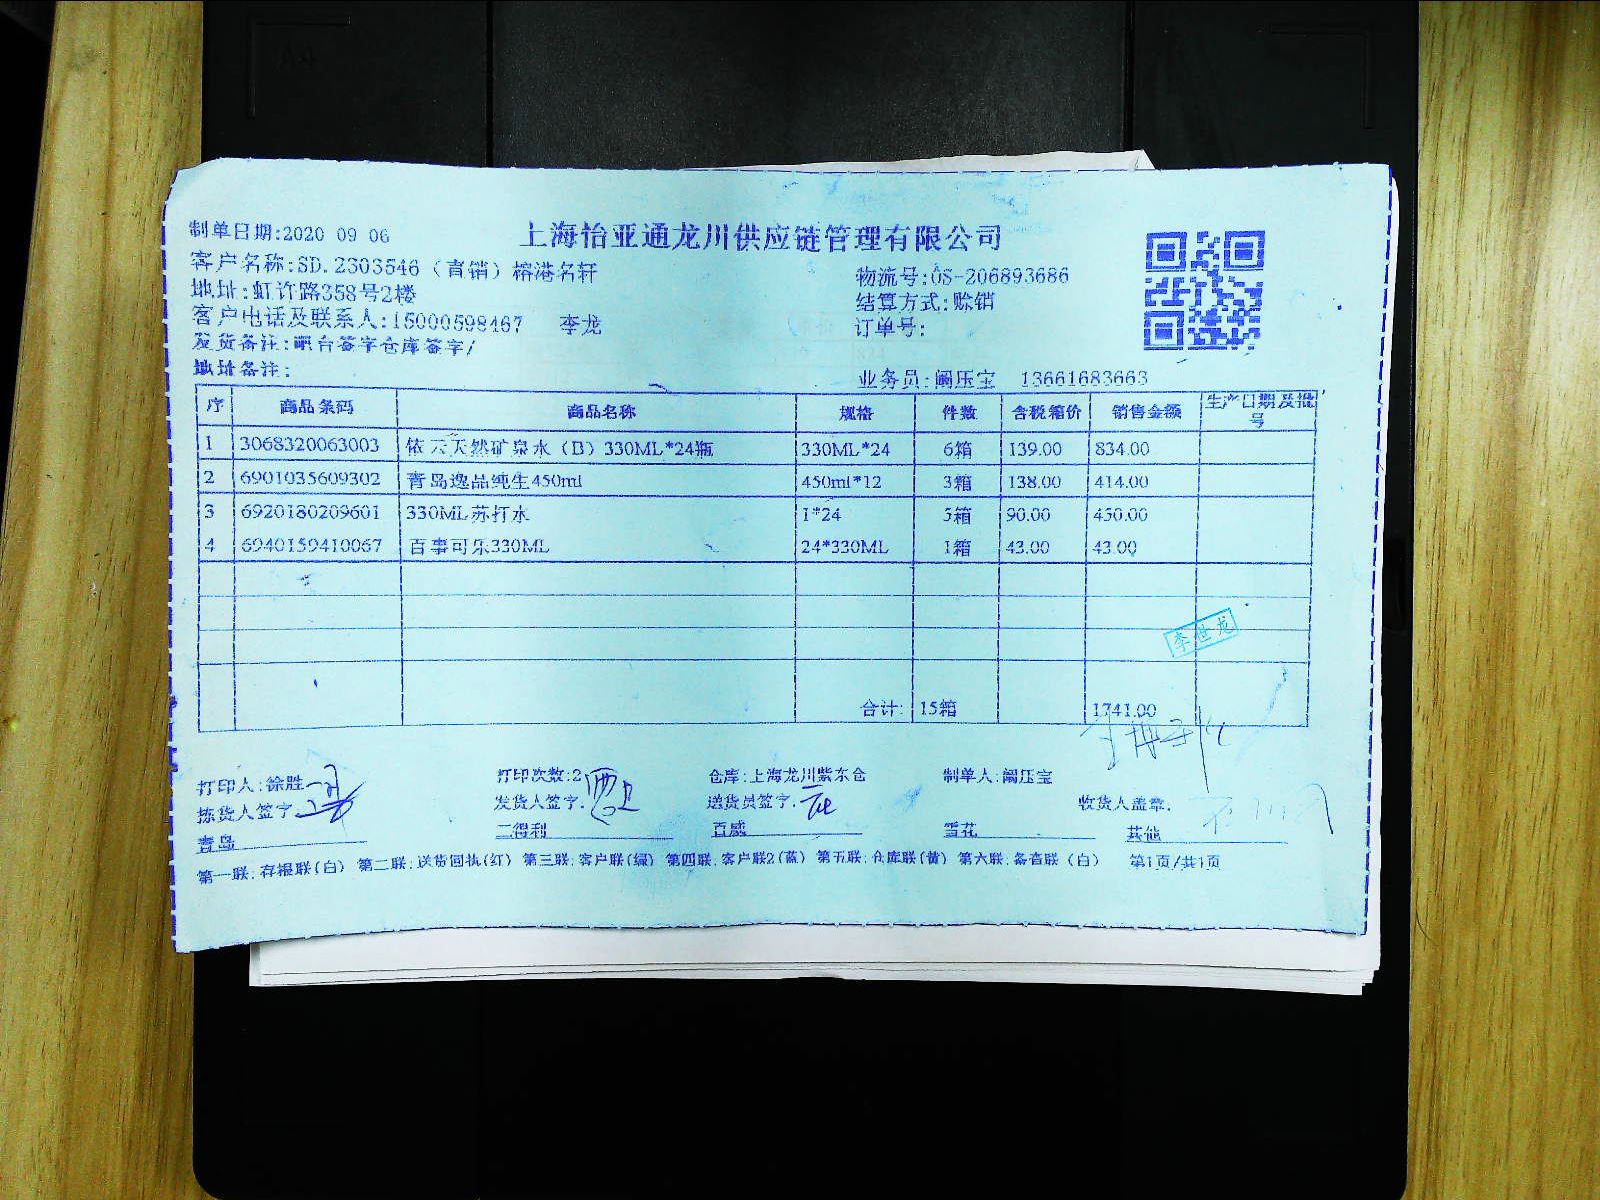 上海怡亚通龙川供应链管理有限公司
制单日期:2020 09 06
客户名称:SD.2303546（直销）榕港名轩
物流号:OS-206893686
地址:虹许路358号2楼
结算方式:赊销
客户电话及联系人:15000598467 李龙
订单号:
发货备注:吧台签字仓库签字/
地址备注:
业务员:阚压宝 13661683663
序 商品条码 商品名称 规格 件数 含税箱价 销售金额 生产日期及批号
1 3068320063003 依云天然矿泉水（B）330ML*24瓶 330ML*24 6箱 139.00 834.00
2 6901035609302 青岛逸品纯生450ml 450ml*12 3箱 138.00 414.00
3 6920180209601 330ML苏打水 1*24 5箱 90.00 450.00
4 6940159410067 百事可乐330ML 24*330ML 1箱 43.00 43.00
李世龙
合计: 15箱 1741.00
打印人:徐胜 打印次数:2 仓库:上海龙川紫东仓 制单人:阚压宝
拣货人签字: 发货人签字: 送货员签字: 收货人盖章:
青岛 三得利 百威 雪花 其他
第一联:存根联(白) 第二联:送货回执(红) 第三联:客户联(绿) 第四联:客户联2(蓝) 第五联:仓库联(黄) 第六联:备查联（白） 第1页/共1页